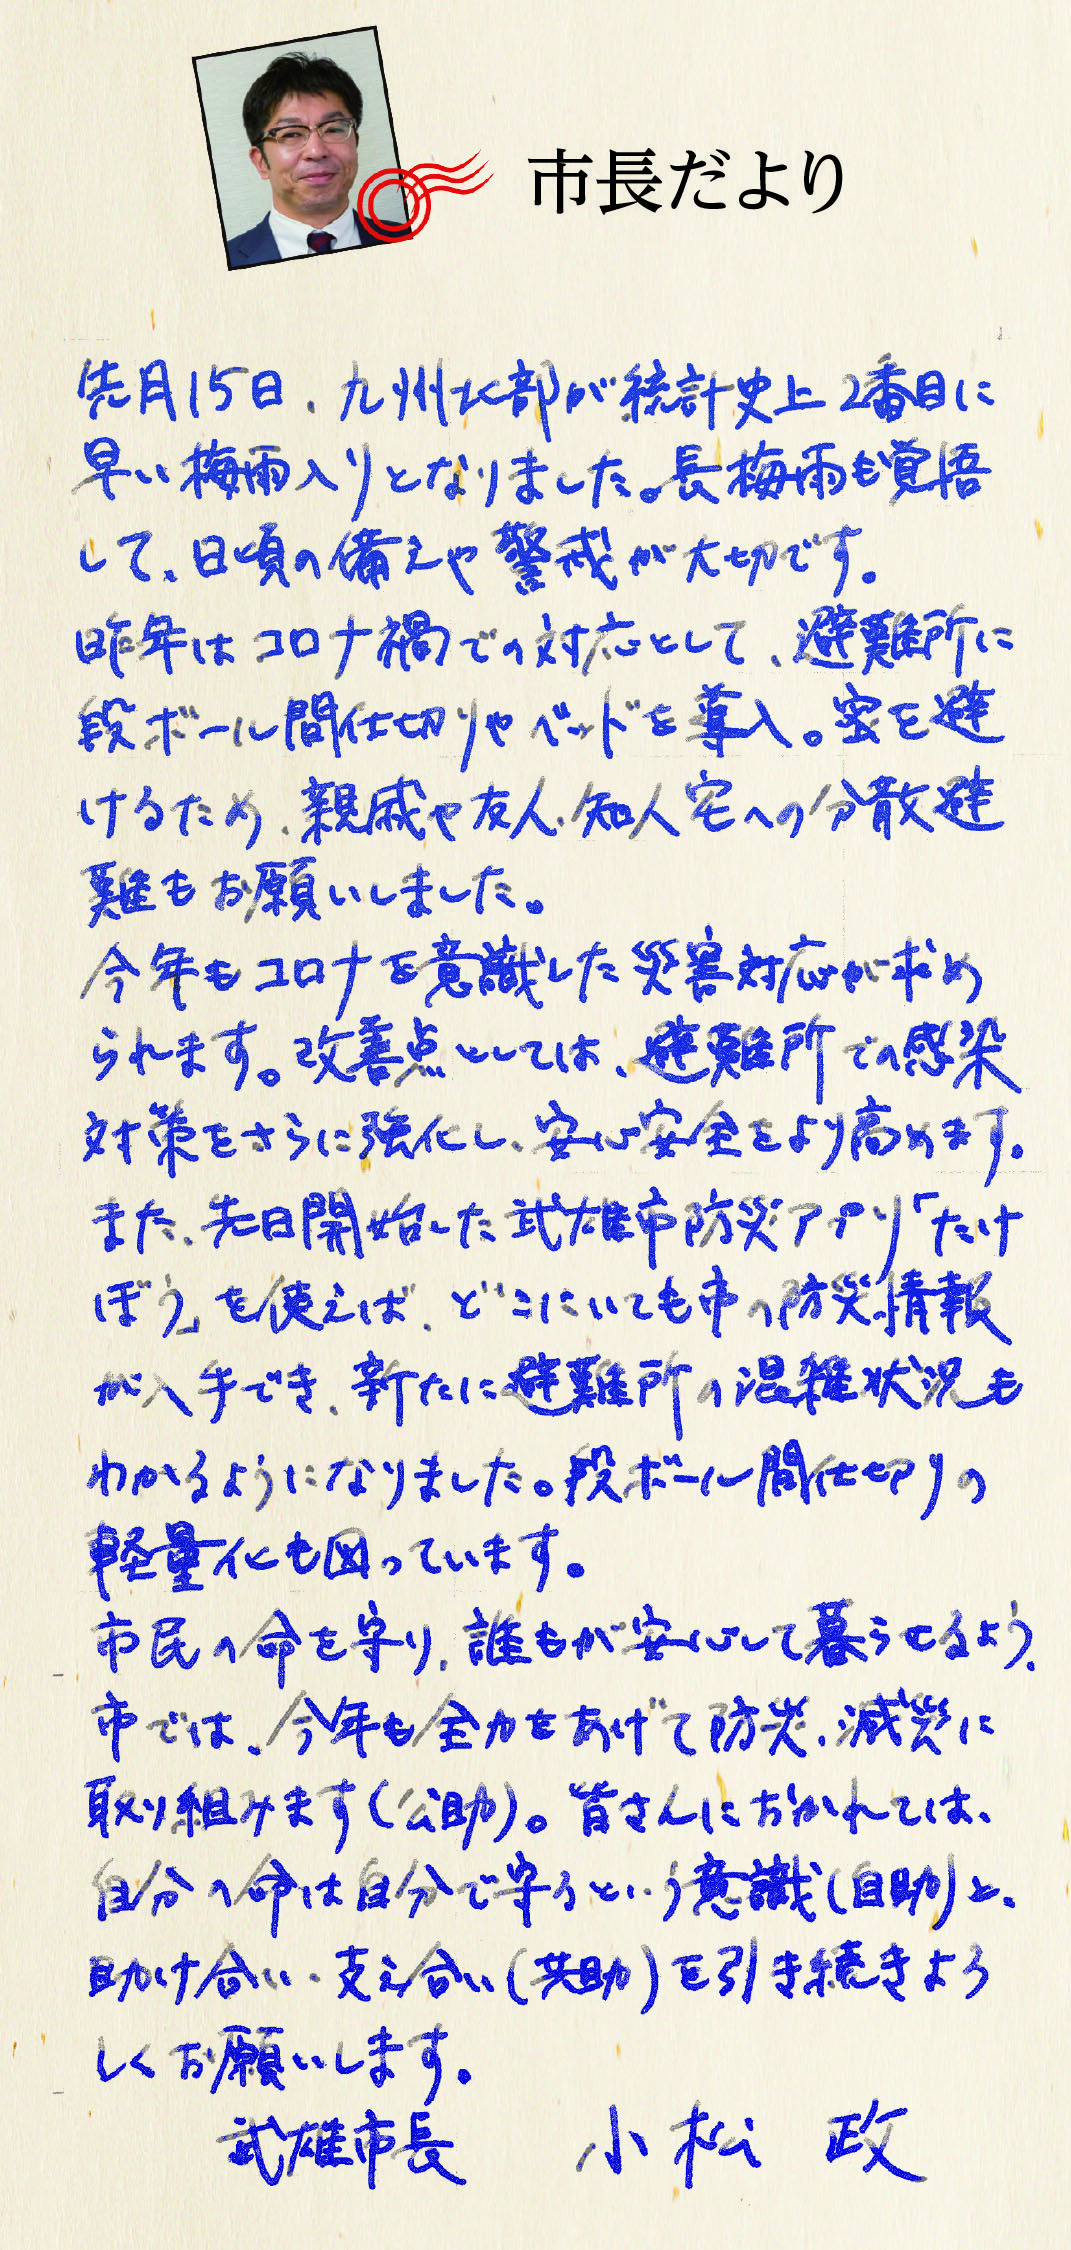 市長だより
先月15日、九州北部が統計史上2番目に
早い梅雨入りとなりました。長梅雨も覚悟
して、日頃の備えや警戒が大切です。
昨年はコロナ禍での対応として、避難所に
段ボール間仕切りやベッドを導入。密を避
けるため、親戚や友人・知人宅への分散避
難もお願いしました。
今年もコロナを意識した災害対応が求め
られます。改善点としては、避難所での感染
対策をさらに強化し、安心安全をより高めます。
また、先日開始した武雄市防災アプリ「たけ
ぼう」を使えば、どこにいても市の防災情報
が入手でき、新たに避難所の混雑状況も
わかるようになりました。段ボール間仕切りの
軽量化も図っています。
市民の命を守り、誰もが安心して暮らせるよう、
市では、今年も全力をあげて防災、減災に
取り組みます(公助)。皆さんにおかれては、
自分の命は自分で守るという意識(自助)と、
助け合い・支え合い(共助)を引き続きよろ
しくお願いします。
武雄市長 小松 政